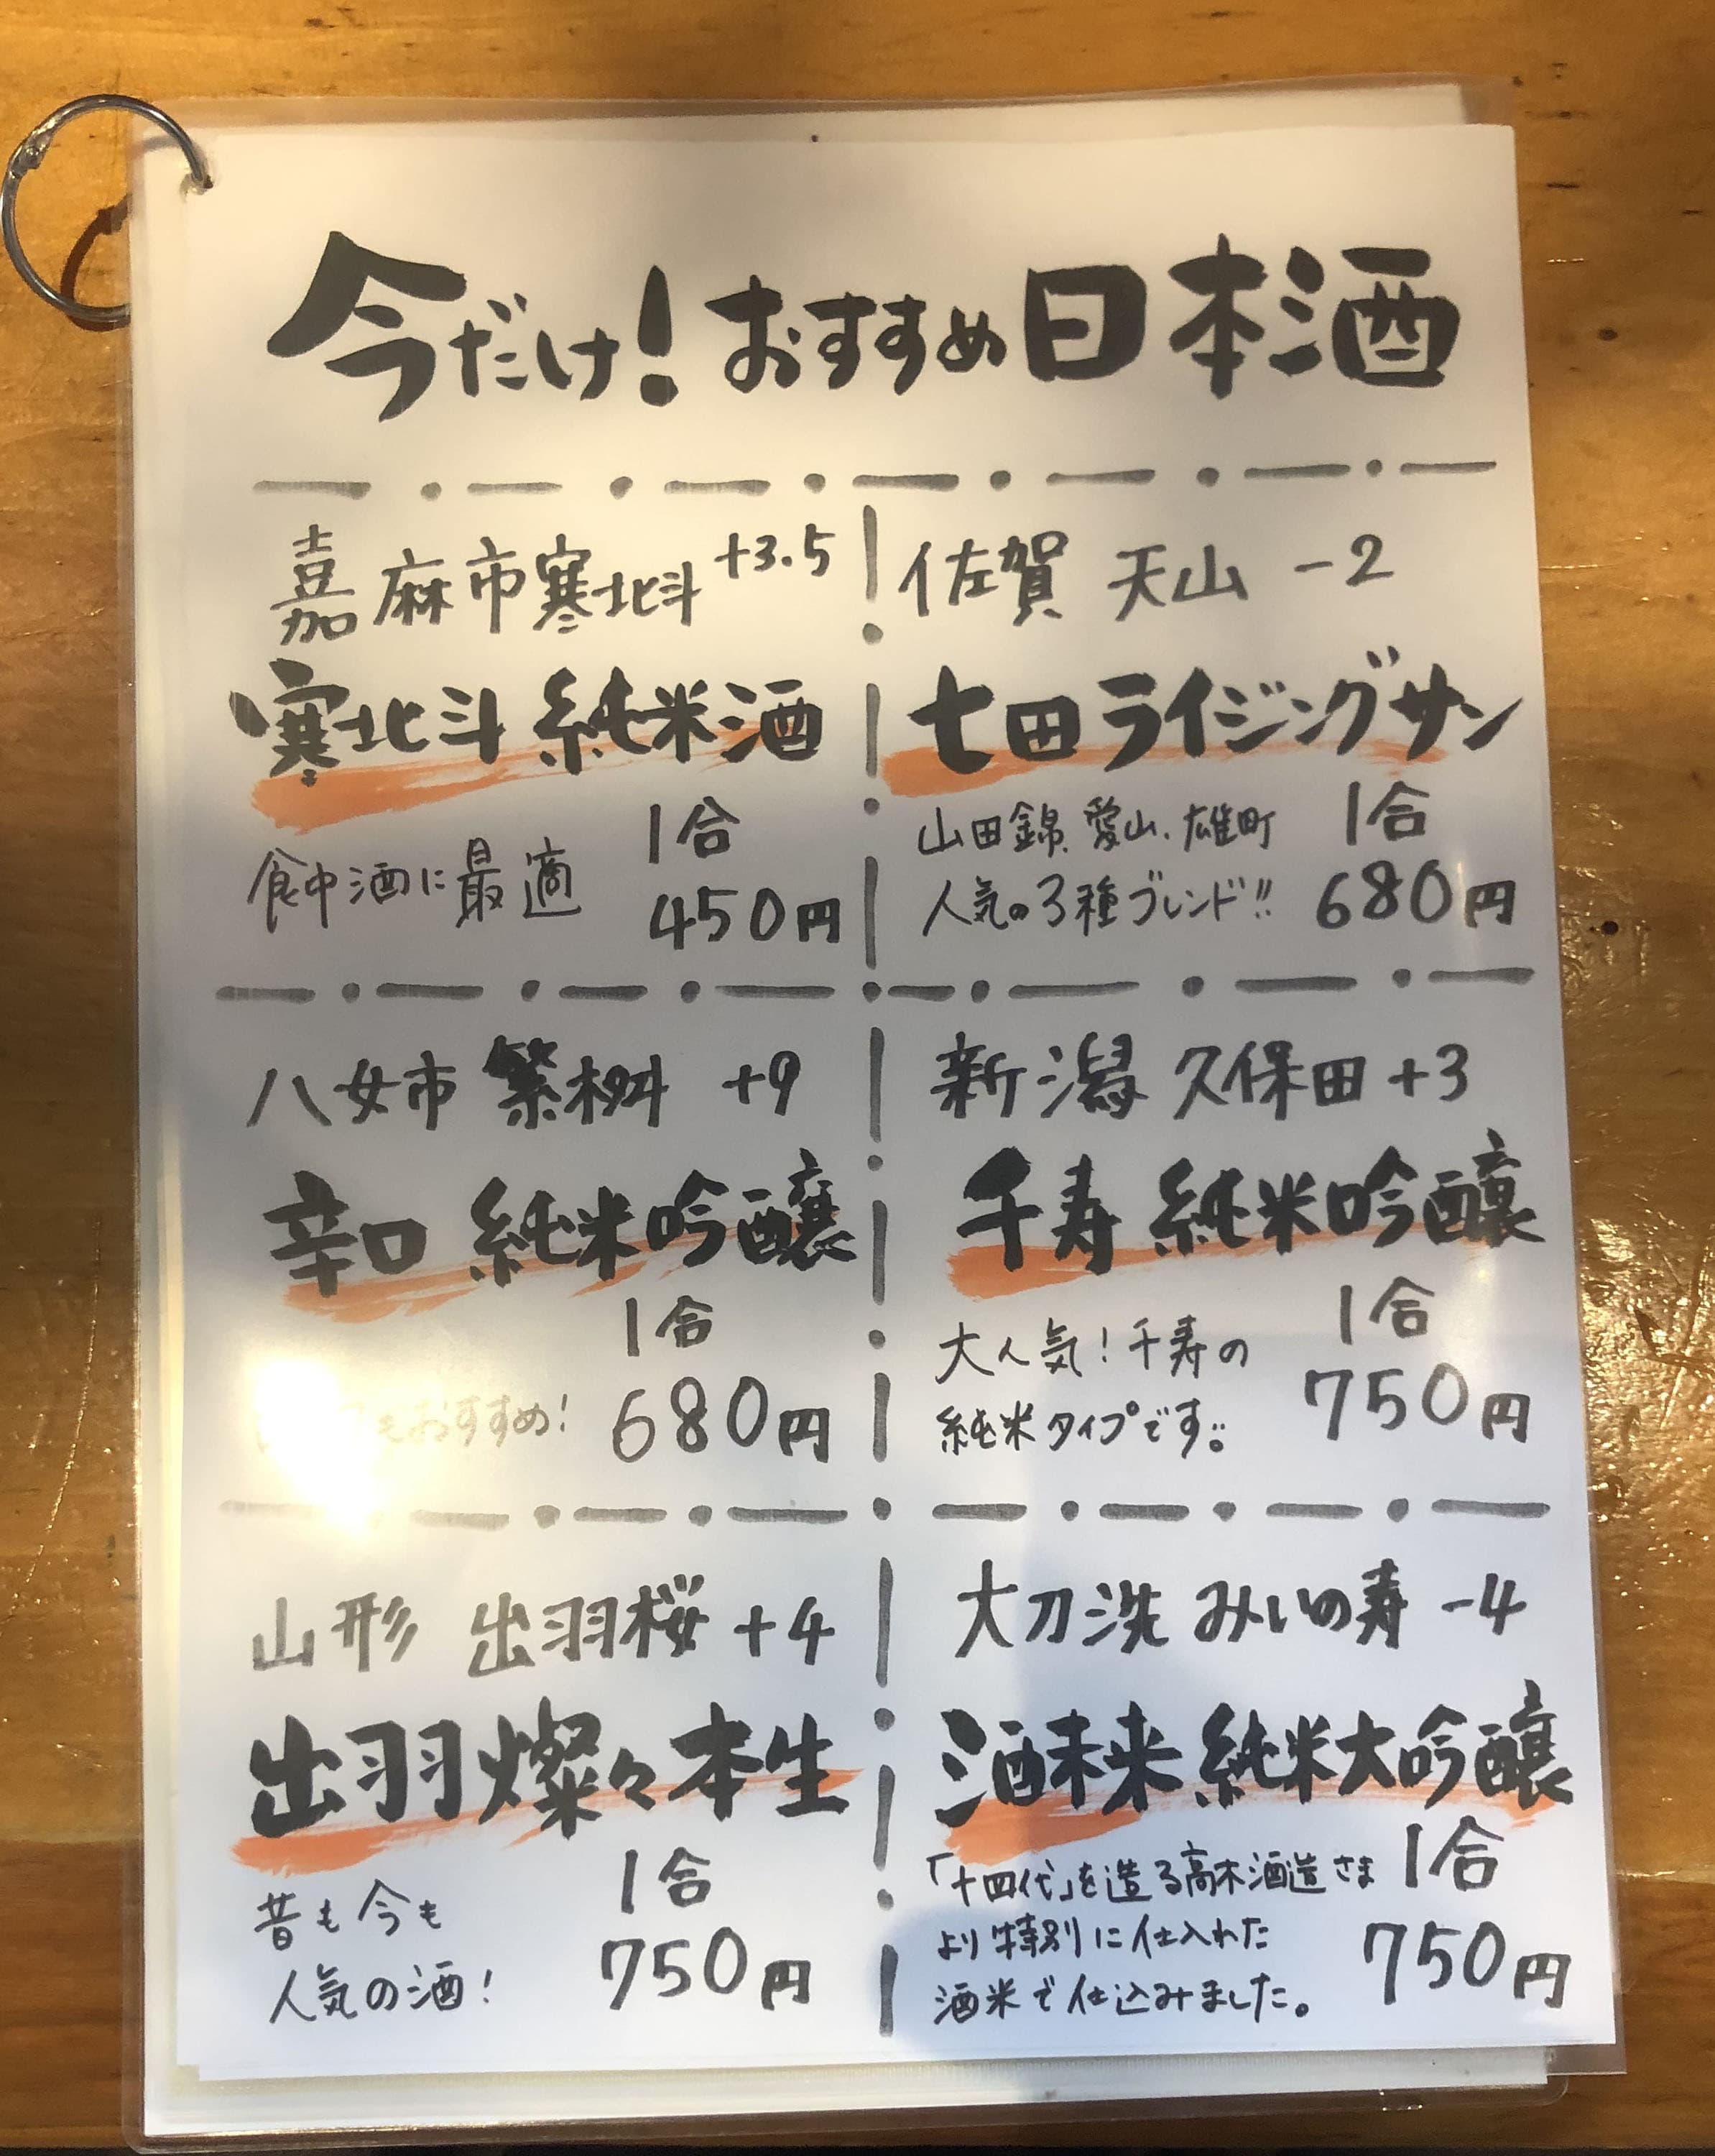 今だけ!おすすめ日本酒
嘉麻市寒北斗 +3.5
寒北斗 純米酒
食中酒に最適
1合
450円
佐賀 天山 -2
七田ライジングサン
山田錦、愛山、雄町
人気の3種ブレンド!!
1合
680円
八女市 繁桝 +9
辛口 純米吟醸
もおすすめ!
1合
680円
新潟 久保田 +3
千寿 純米吟醸
大人気!千寿の
純米タイプです。
1合
750円
山形 出羽桜 +4
出羽燦々本生
昔も今も
人気の酒!
1合
750円
大刀洗 みいの寿 -4
酒未来 純米大吟醸
「十四代」を造る高木酒造さま
より特別に仕入れた
酒米で仕込みました。
1合
750円